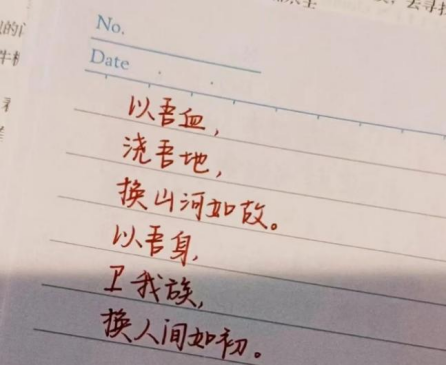 No.
Date
以吾血，
浇吾地，
换山河如故。
以吾身，
卫我族，
换人间如初。